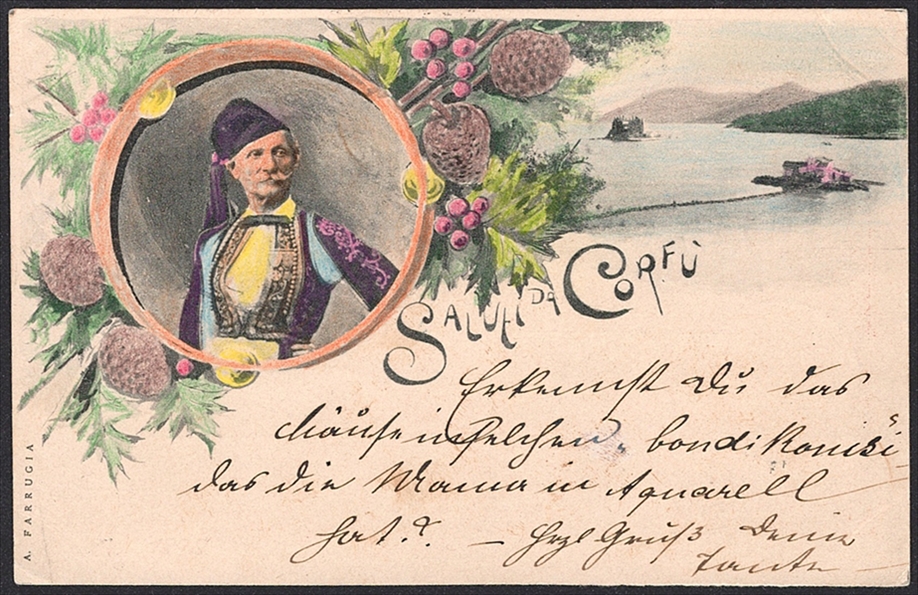 Saluti da Corfù
Erkennst Du das
Mäuseinselchen, "bondikonisi"
das die Mama in Aquarell
hat? – Hrzl Gruß Deine
Tante –
A. FARRUGIA